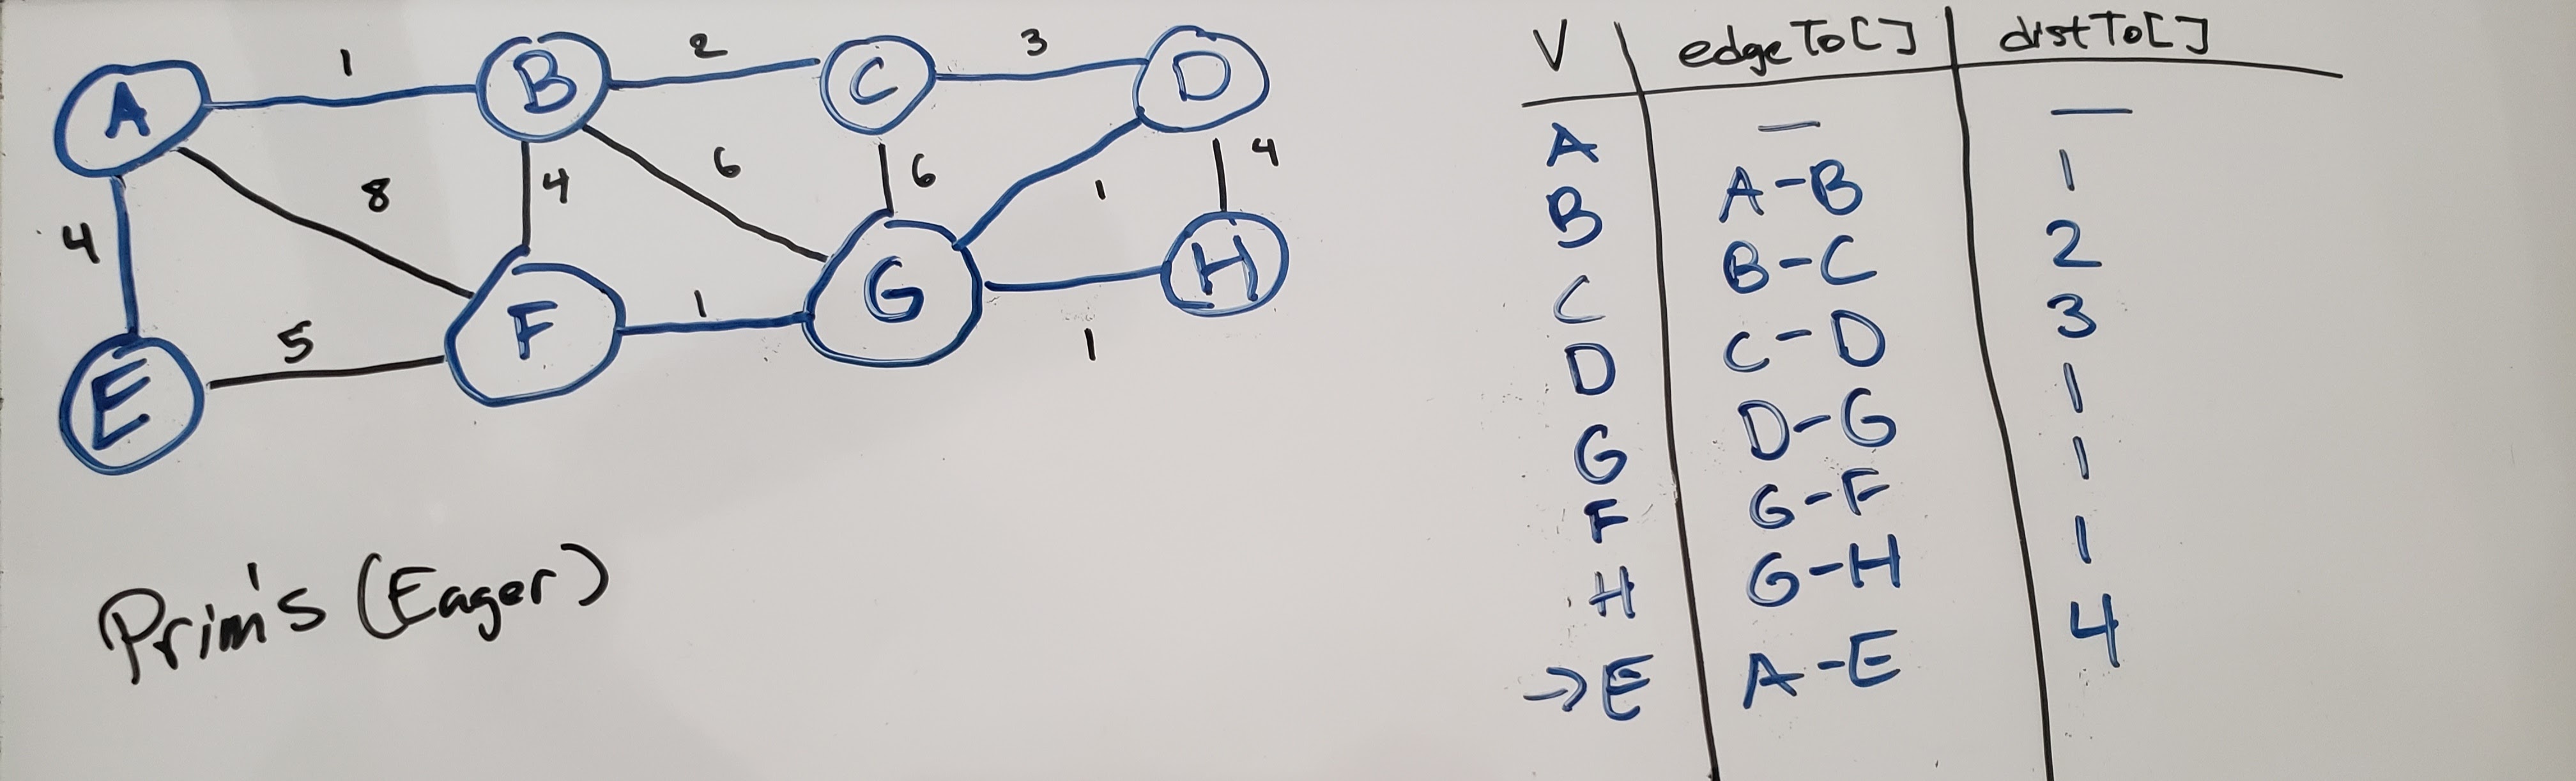 1 2 3
A B C D
8 4 6 6 1 4
4
E 5 F 1 G 1 H
Prim's (Eager)
V edgeTo[] distTo[]
A — —
B A-B 1
C B-C 2
D C-D 3
G D-G 1
F G-F 1
H G-H 1
→E A-E 4